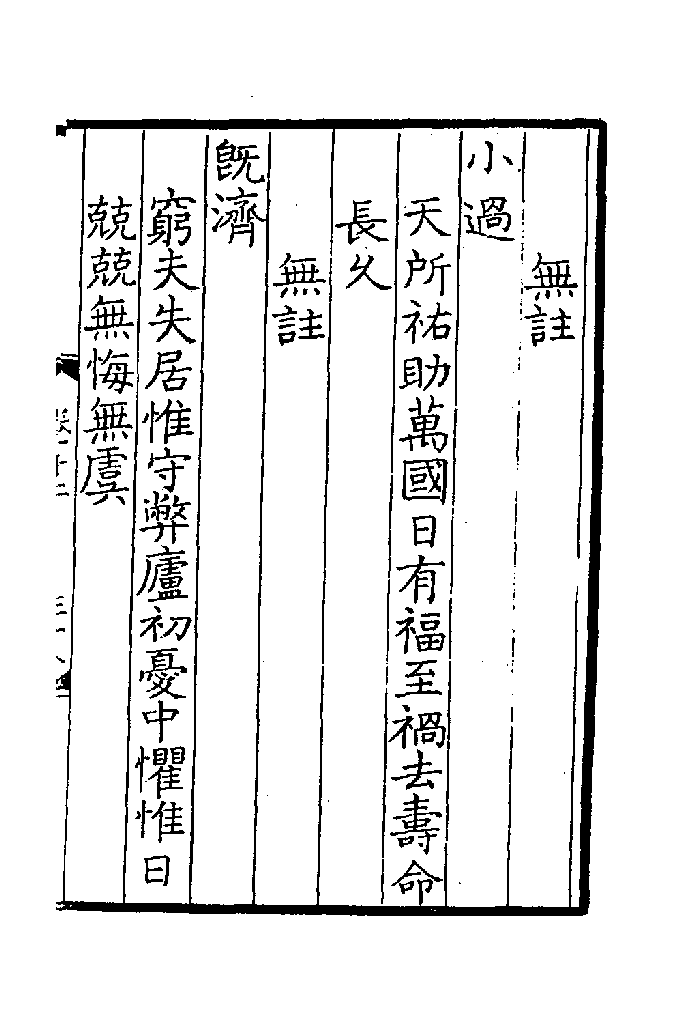 無註
小過
天所祐助萬國日有福至禍去壽命
長久
無註
旣濟
窮夫失居惟守弊廬初憂中懼惟日
兢兢無悔無虞